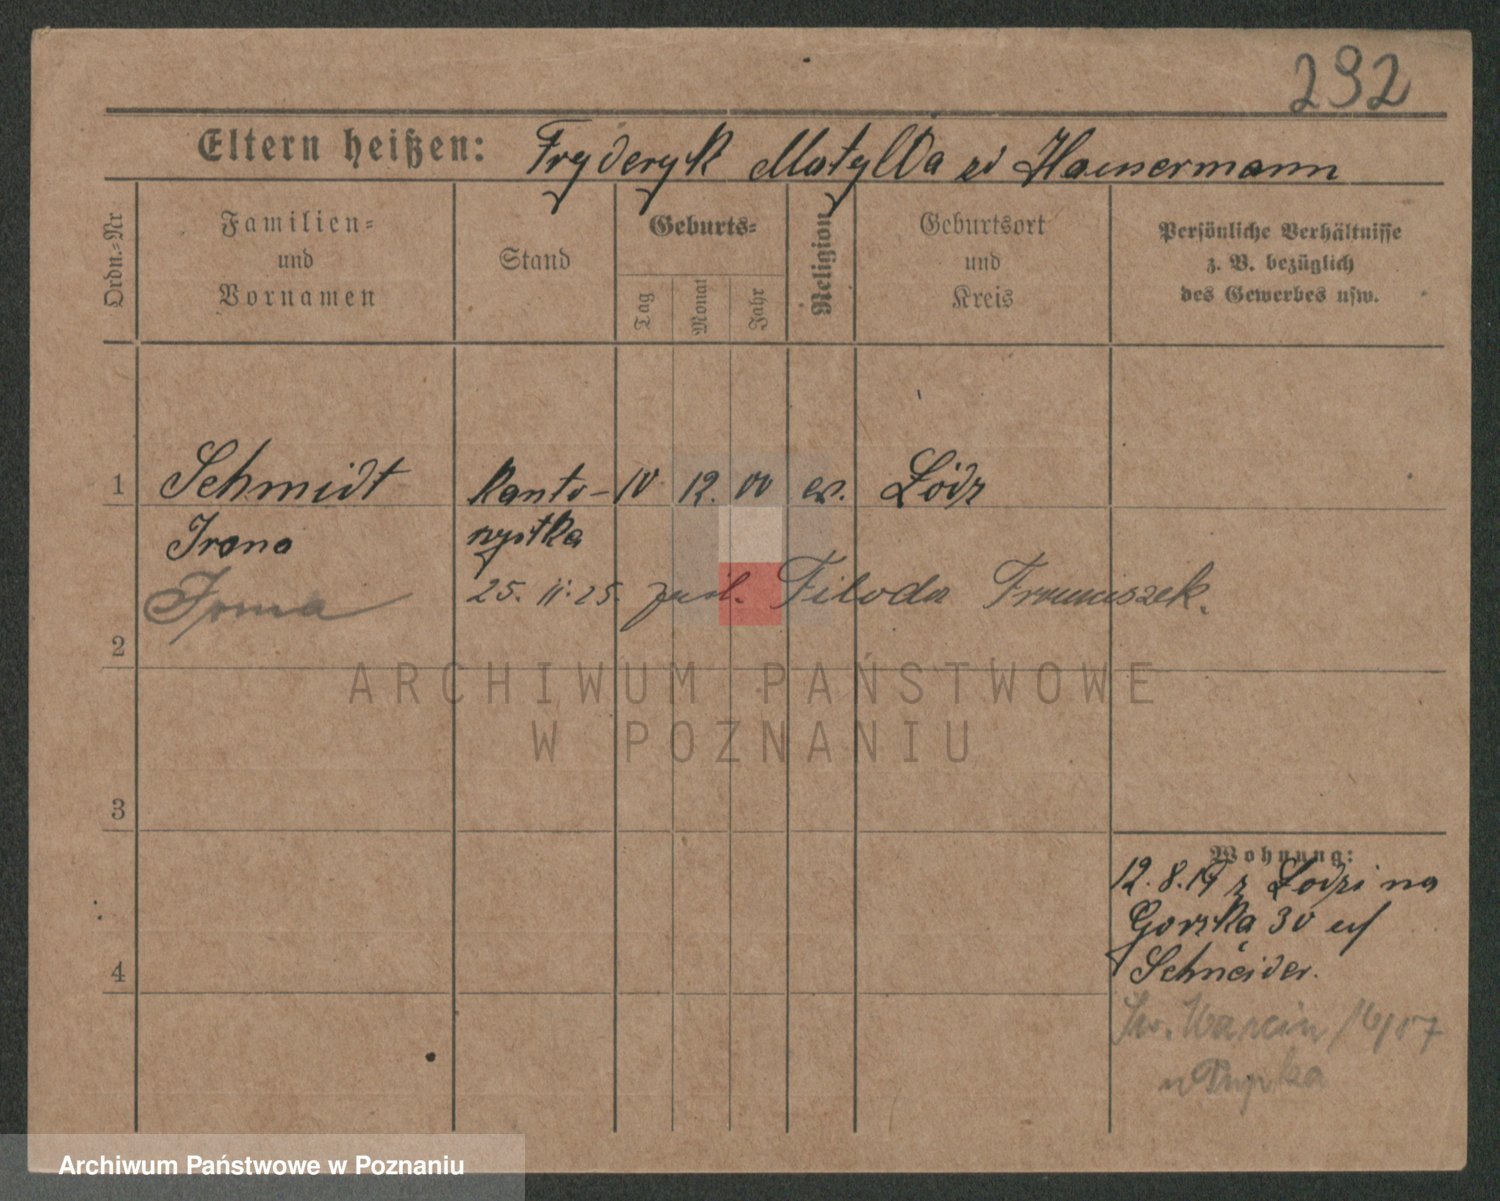 292
Eltern heißen: Fryderyk Matylda zd Hausermann
Ordn.-Nr
Familien-
und
Vornamen
Stand
Geburts-
Tag
Monat
Jahr
Religion
Geburtsort
und
Kreis
Persönliche Verhältnisse
z. B. bezüglich
des Gewerbes usw.
1 Schmidt kanto- 10 12. 00 ew. Łódz
Irena nystka
Irma 25. 11. 25. Filoda Franciszek.
2
ARCHIWUM PAŃSTWOWE
W POZNANIU
3
Wohnung:
12. 8. 19 z Łodzi na
Gorska 30 u/
Schneider.
4
Św. Marcin 16/17
u Pupka
Archiwum Państwowe w Poznaniu